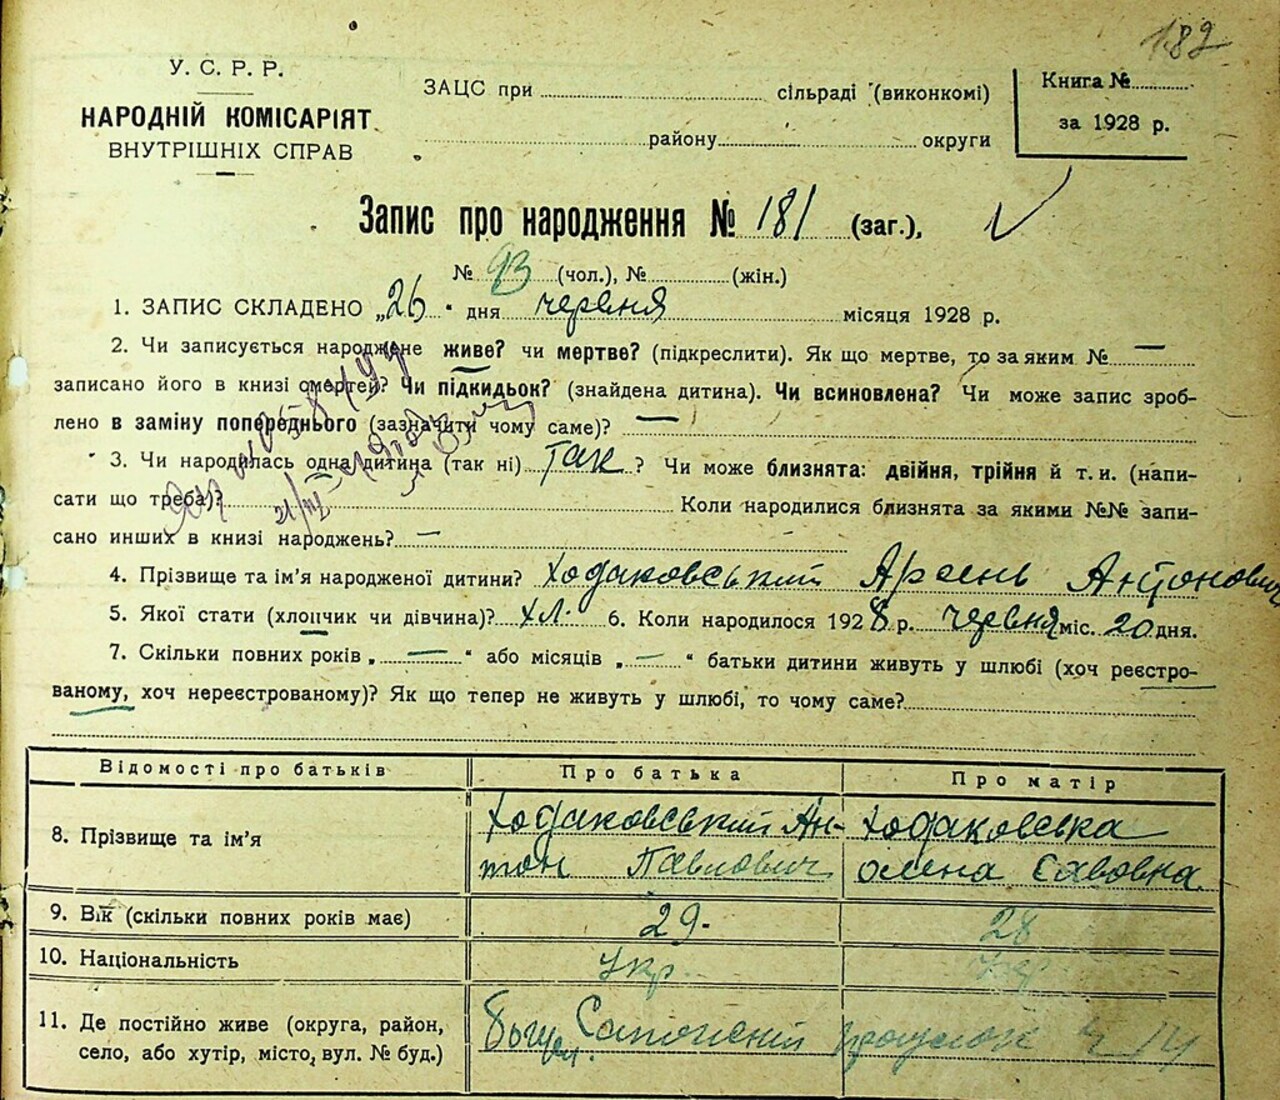 182
У. С. Р. Р.
НАРОДНІЙ КОМІСАРІЯТ
ВНУТРІШНІХ СПРАВ
ЗАЦС при сільраді (виконкомі)
району округи
Книга №
за 1928 р.
Запис про народження № 181 (заг.),
№ 93 (чол.), № (жін.)
1. ЗАПИС СКЛАДЕНО „26“ дня червня місяця 1928 р.
2. Чи записується народжене живе? чи мертве? (підкреслити). Як що мертве, то за яким № —
записано його в книзі смертей? Чи підкидьок? (знайдена дитина). Чи всиновлена? Чи може запис зроб-
лено в заміну попереднього (зазначити чому саме)? —
3. Чи народилась одна дитина (так ні) так? Чи може близнята: двійня, трійня й т. и. (напи-
сати що треба)? Коли народилися близнята за якими №№ запи-
сано инших в книзі народжень? —
4. Прізвище та ім'я народженої дитини? Ходаковський Арсень Антонович
5. Якої стати (хлопчик чи дівчина)? хл. 6. Коли народилося 1928 р. червня міс. 20 дня.
7. Скільки повних років „—“ або місяців „—“ батьки дитини живуть у шлюбі (хоч реєстро-
ваному, хоч нереєстрованому)? Як що тепер не живуть у шлюбі, то чому саме?
Відомості про батьків Про батька Про матір
8. Прізвище та ім'я
Ходаковський Ан-
тон Павлович
Ходаковська
Олена Савовна
9. Вік (скільки повних років має) 29. 28
10. Національність Укр. Укр
11. Де постійно живе (округа, район,
село, або хутір, місто, вул. № буд.)